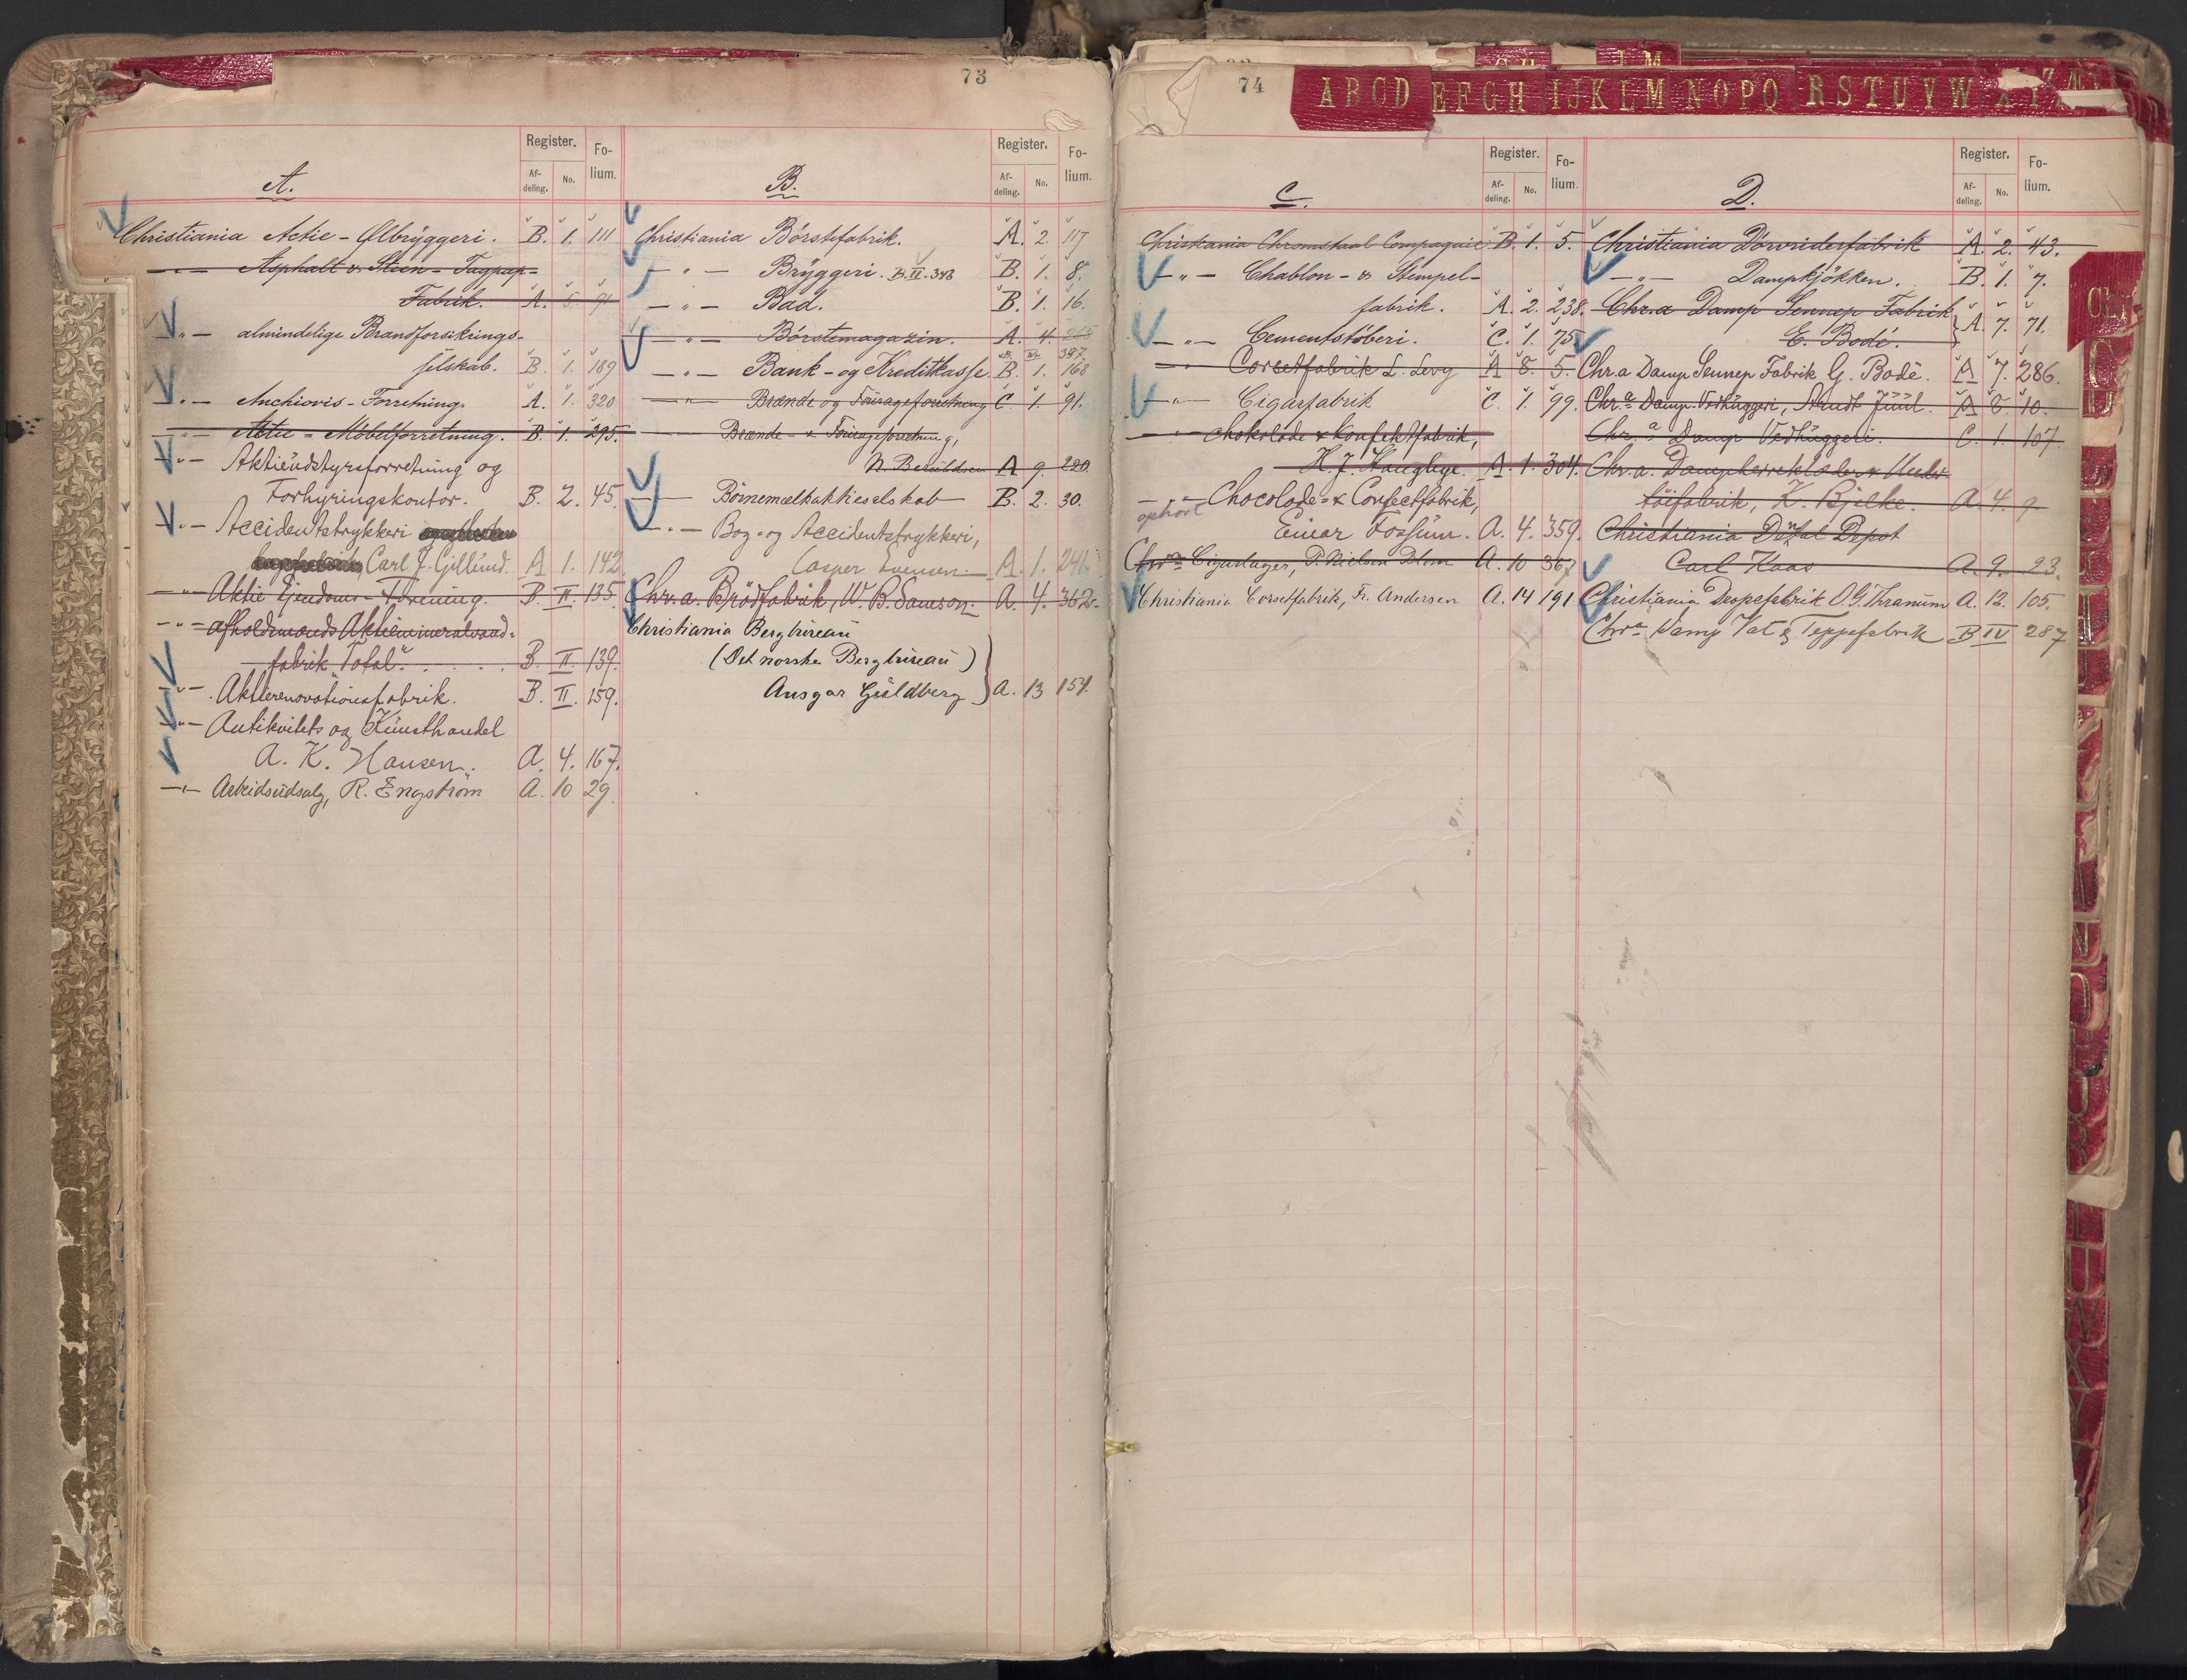 73
Register.
Fo-
lium.
Af-
deling.
No.
A.
Christiania Actie-Ølbryggeri. B. 1. 111
—"— Asphalt & Steen-Tagpap-
Fabrik. A. 5. 91
—"— almindelige Brandforsikrings-
selskab. B. 1. 189
—"— Anchiovis-Forretning. A. 1. 320
—"— Actie-Möbelforretning. B. 1. 295.
—"— Aktieudstyrsforretning og
Forhyringskontor. B. 2. 45.
—"— Accidentstrykkeri
Carl J. Gillund. A 1. 142
—"— Aktie Ejendoms-Forening. B. II. 135.
—"— afholdsmænds Aktiemineralvand-
fabrik "Total". B. II. 139.
—"— Aktierenovationsfabrik. B. II. 159.
—"— Antikvitets og Kunsthandel
A. K. Hansen. A. 4. 167.
—"— Arbeidsudsalg, R. Engström A. 10 29.
Register.
Fo-
lium.
Af-
deling.
No.
B.
Christiania Börstefabrik. A. 2. 117
—"— Bryggeri. B. II. 348 B. 1. 8.
—"— Bad. B. 1. 16.
—"— Börstemagazin. A. 4. 265
387.
—"— Bank- og Kreditkasse. B. 1. 168
—"— Brænde og Fourageforretning C. 1. 91.
—"— Brænde- & Fourageforretning,
N. A 9. 220.
—"— Börnemælkaktieselskab B. 2. 30.
—"— Bog- og Accidentstrykkeri,
Casper Evensen. A. 1. 241.
Chr.a. Brödfabrik, W. B. Samson. A. 4. 362.
Christiania Bergbureau
(Det norske Bergbureau)
Ansgar Guldberg } A. 13 154.
74
ABCD EFGH IJKLM NOPQ RSTUVW
Register.
Fo-
lium.
Af-
deling.
No.
C.
Christiania Chromstaal Compagnie B. 1. 5.
—"— Chablon- & Stempel-
fabrik. A. 2. 238.
—"— Cementstöberi. C. 1. 75
—"— Corsetfabrik L. Levy A 8. 5.
—"— Cigarfabrik C. 1. 99.
—"— Chokolade & Konfektfabrik,
H. J. Haugbye A. 1. 304.
—"— Chocolade- & Confectfabrik,
ophørt
Einar Fossum. A. 4. 359.
Chra Cigarlager, P. Nielsen Blom A. 10 367
Christiania Corsetfabrik, Fr. Andersen A. 14 191
Register.
Fo-
lium.
Af-
deling.
No.
D.
Christiania Dörvriderfabrik A. 2. 43.
—"— Dampkjökken. B. 1. 7.
Chr.a Damp Sennep Fabrik
E. Bodé. } A. 7. 71.
Chr.a Damp Sennep Fabrik G. Bodé. A 7. 286.
Chr.a Damp-Vedhuggeri, Arndt Juul. A 6. 10.
Chr.a Damp Vedhuggeri. C. 1. 107.
Chr.a. Dampherreklæder & Under-
töifabrik, K. Bjelke. A. 4. 9
Christiania Dental Depot
Carl Kaas A. 9. 23.
Christiania Dropsfabrik O. G. Thranum A. 12. 105.
Chra Damp Vat & Teppefabrik B IV 287